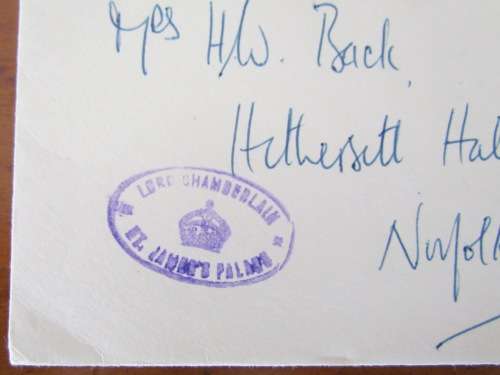 Mrs H.W. Back,
Hethersett Hal
Norfolk
LORD CHAMBERLAIN
ST. JAMES'S PALACE